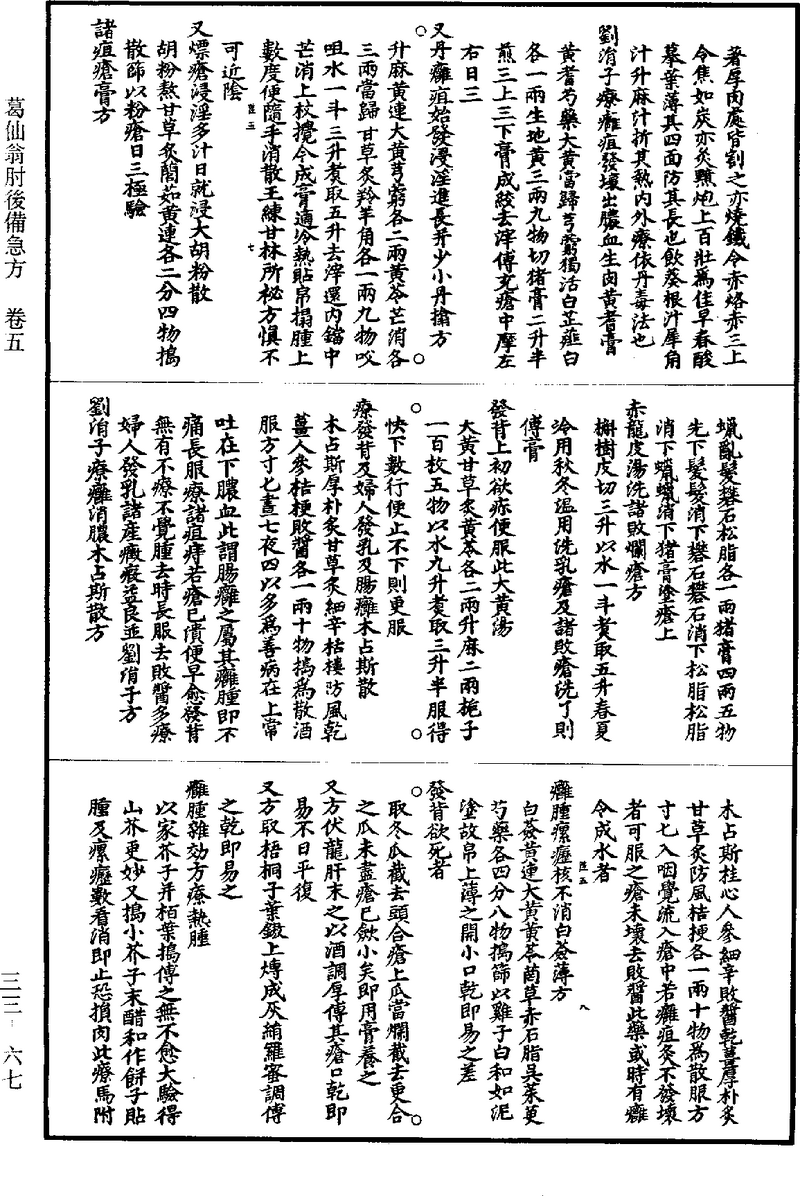 葛仙翁肘後備急方　卷五
著厚肉處皆割之亦燒鐵令赤烙赤三上
令焦如炭亦灸黶炮上百壯為佳早春酸
摹葉薄其四面防其長也飲葵根汁犀角
汁升麻汁折其熱內外療依丹毒法也
劉涓子療癰疽發壞出膿血生肉黃耆膏
黃耆芍藥大黃當歸芎藭獨活白芷薤白
各一兩生地黃三兩九物切猪膏二升半
煎三上三下膏成絞去滓傅充瘡中摩左
右日三
又丹癰疽始發浸淫進長并少小丹搶方
升麻黃連大黃芎窮各二兩黃芩芒消各
三兩當歸甘草炙羚羊角各一兩九物㕮
咀水一斗三升煑取五升去滓還內鐺中
芒消上杖攪令成膏適冷熱貼帛搨腫上
數度便隨手消散王練甘林所秘方慎不
可近陰
葛三　七
又熛瘡浸淫多汁日就浸大胡粉散
胡粉熬甘草炙䕡茹黃連各二分四物搗
散篩以粉瘡日三極驗
諸疽瘡膏方
蠟亂髮礬石松脂各一兩猪膏四兩五物
先下髮髮消下礬石礬石消下松脂松脂
消下蠟蠟消下猪膏塗瘡上
赤龍皮湯洗諸敗爛瘡方
槲樹皮切三升以水一斗煑取五升春夏
冷用秋冬溫用洗乳瘡及諸敗瘡洗了則
傅膏
發背上初欲疹便服此大黃湯
大黃甘草炙黃芩各二兩升麻二兩梔子
一百枚五物以水九升煑取三升半服得
快下數行便止不下則更服
療發背及婦人發乳及腸癰木占斯散
木占斯厚朴炙甘草炙細辛栝樓防風乾
薑人參桔梗敗醬各一兩十物搗為散酒
服方寸匕晝七夜四以多為善病在上常
吐在下膿血此謂腸癰之屬其癰腫即不
痛長服療諸疽痔若瘡已潰便早愈發背
無有不療不覺腫去時長服去敗醬多療
婦人發乳諸產癥瘕益良並劉涓子方
劉涓子療癰消膿木占斯散方
木占斯桂心人參細辛敗醬乾薑厚朴炙
甘草炙防風桔梗各一兩十物為散服方
寸匕入咽覺流入瘡中若癰疽灸不發壞
者可服之瘡未壞去敗醬此藥或時有癰
令成水者
癰腫瘰癧核不消白蘞薄方
白蘞黃連大黃黃芩𦮕草赤石脂吳茱萸
芍藥各四分八物搗篩以雞子白和如泥
塗故帛上薄之開小口乾即易之差
葛五　八
發背欲死者
取冬瓜截去頭合瘡上瓜當爛截去更合
之瓜未盡瘡已斂小矣即用膏養之
又方伏龍肝末之以酒調厚傅其瘡口乾即
易不日平復
又方取梧桐子葉鏊上煿成灰絹羅蜜調傅
之乾即易之
癰腫雜効方療熱腫
以家芥子并栢葉搗傅之無不愈大驗得
山芥更妙又搗小芥子末醋和作餅子貼
腫及瘰癧數看消即止恐損肉此療馬附
三三－六七